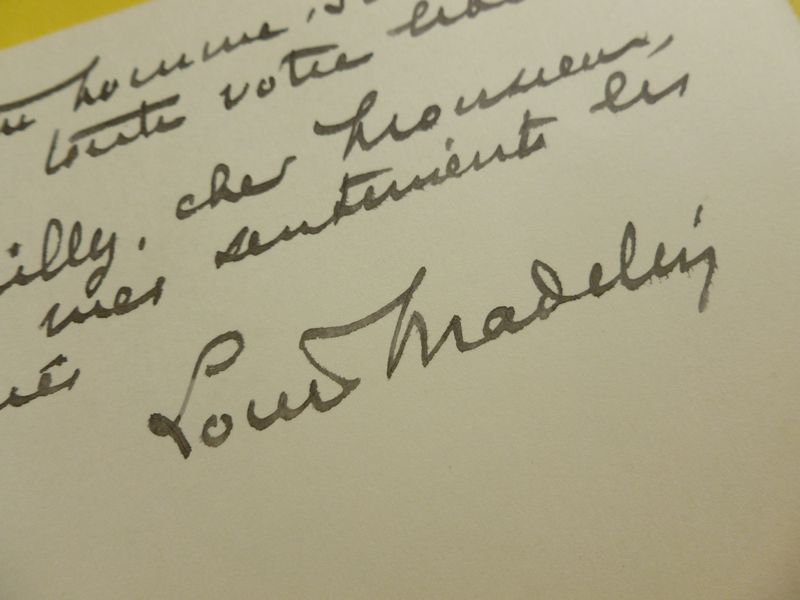 homme,
toute votre
illy, cher Monsieur,
mes sentiments les
ués
Louis Madelin